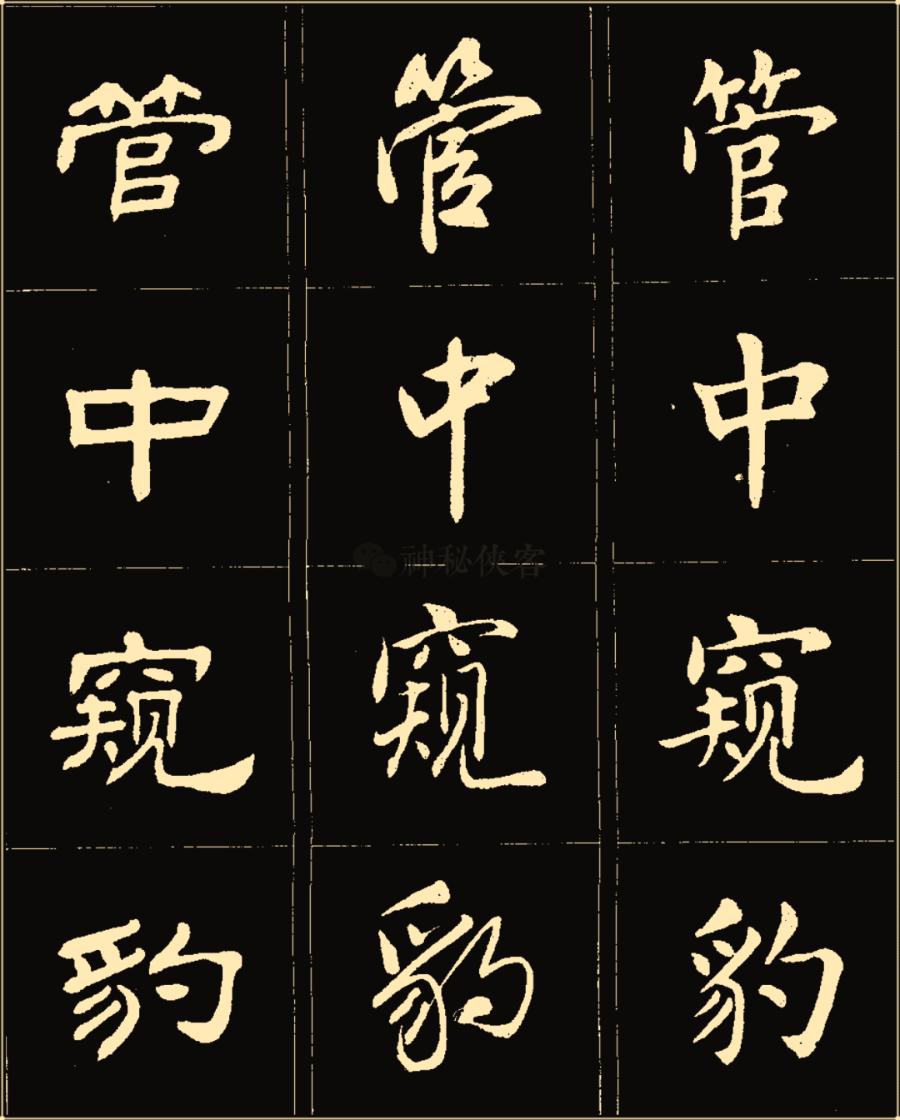 管 管 管
中 中 中
神秘侠客
窥 窥 窥
豹 豹 豹